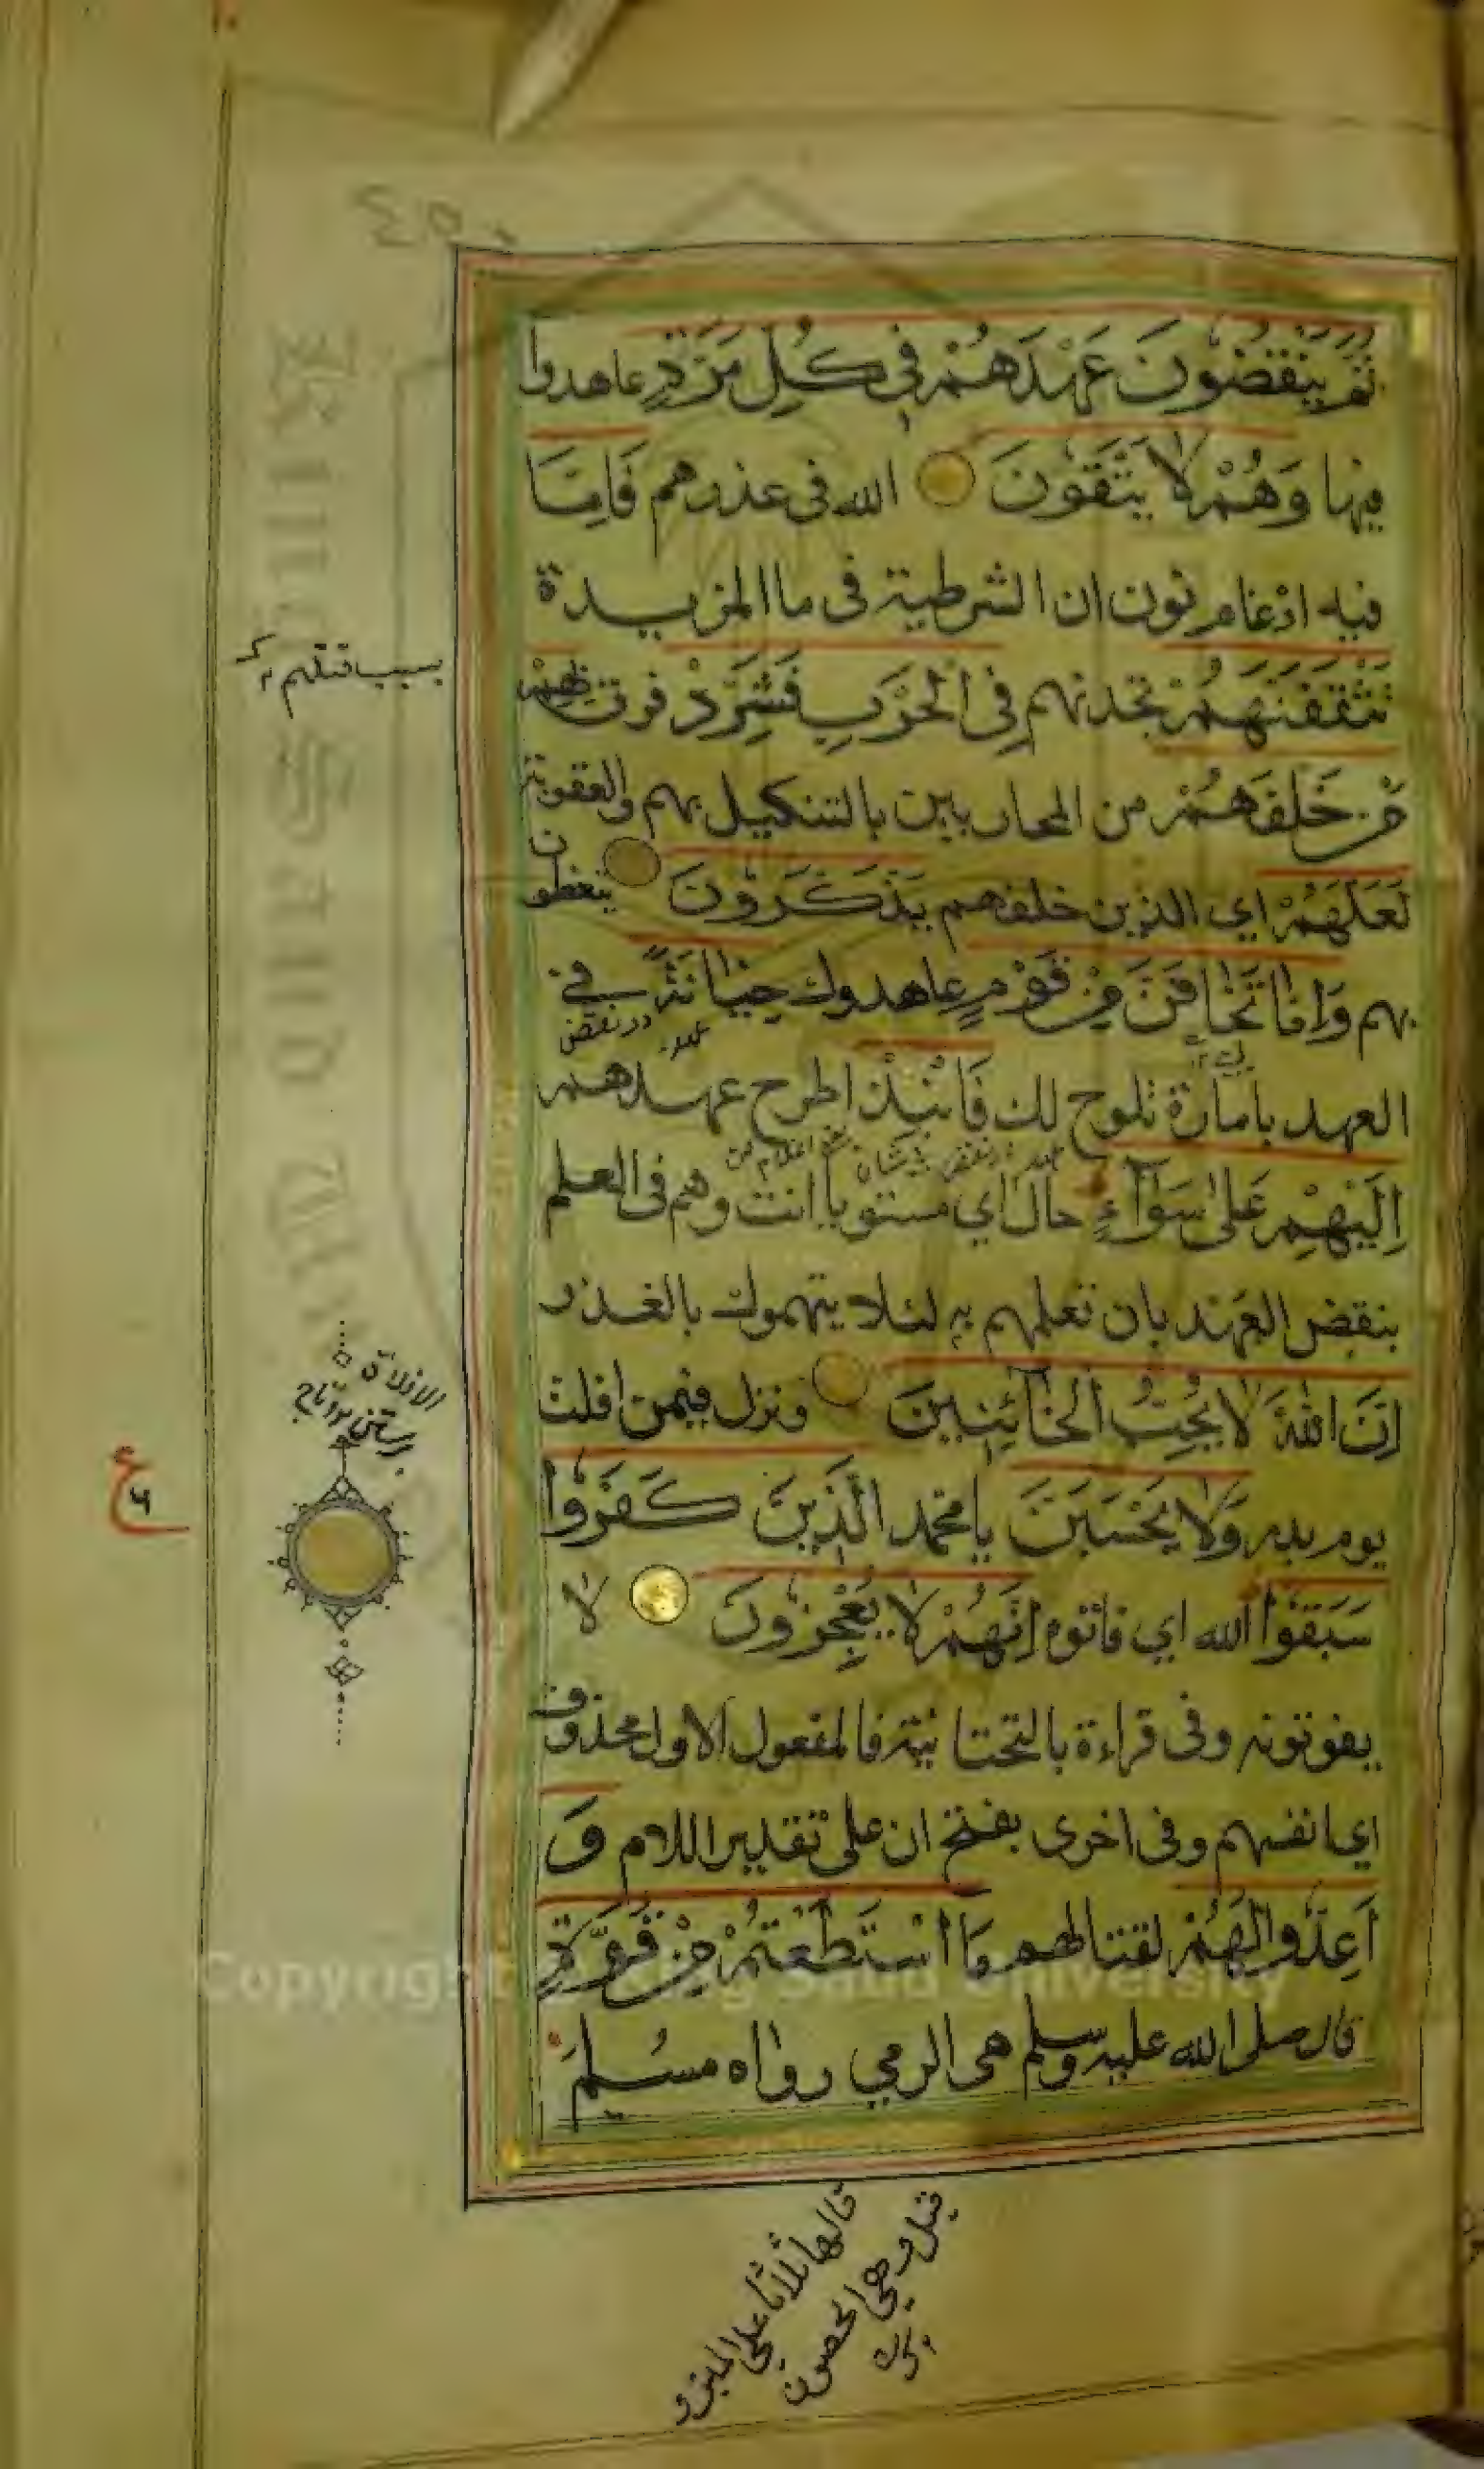 ثُمَّ يَنْقُضُونَ عَهْدَهُمْ فِي كُلِّ مَرَّةٍ عاهدوا
فيها وَهُمْ لَا يَتَّقُونَ الله في عذرهم فَإِمَّا
فيه ادغام نون ان الشرطية في ما المزيدة
تَثْقَفَنَّهُمْ تجدنهم فِي الْحَرْبِ فَشَرِّدْ فرق بِهِمْ
مَنْ خَلْفَهُمْ من المحاربين بالتنكيل بهم والعقوبة
لَعَلَّهُمْ اي الذين خلفهم يَذَّكَّرُونَ يتعظون
بهم وَإِمَّا تَخَافَنَّ مِنْ قَوْمٍ عاهدوك خِيَانَةً في
در نقض عهد
العهد بامارة تلوح لك فَانْبِذْ اطرح عهدهم
إِلَيْهِمْ عَلَى سَوَاءٍ حال اي مستويا انت وهم في العلم
بنقض العهد بان تعلمهم به لئلا يتهموك بالغدر
إِنَّ اللَّهَ لَا يُحِبُّ الْخَائِنِينَ ونزل فيمن افلت
يوم بدر وَلَا تَحْسَبَنَّ يا محمد الَّذِينَ كَفَرُوا
سَبَقُوا الله اي فاتوه إِنَّهُمْ لَا يُعْجِزُونَ لا
يفوتونه وفي قراءة بالتحتانية فالمفعول الاول محذوف
اي انفسهم وفي اخرى بفتح ان على تقدير اللام وَ
أَعِدُّوا لَهُمْ لقتالهم مَا اسْتَطَعْتُمْ مِنْ قُوَّةٍ
قال صلى الله عليه وسلم هي الرمي رواه مسلم
بسبب قتلهم
الافلات
ع
٦
قالها ثلاثا على المنبر و
قيل هي الحصون
٤٥٠
Copyright © King Saud University